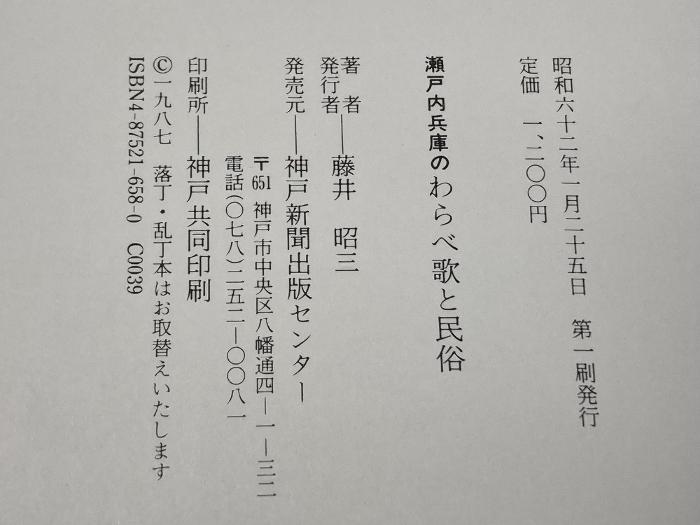 昭和六十二年一月二十五日　第一刷発行
定価　一、二〇〇円
瀬戸内兵庫のわらべ歌と民俗
著　者
発行者――藤井　昭三
発売元――神戸新聞出版センター
〒651 神戸市中央区八幡通四―一―三二
電話(〇七八)二五二―〇〇八一
印刷所――神戸共同印刷
©一九八七　落丁・乱丁本はお取替えいたします
ISBN4-87521-658-0　C0039